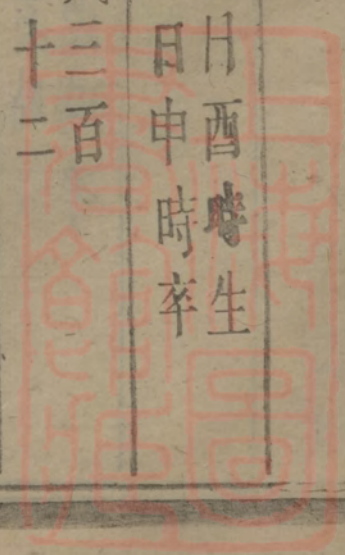 日酉時生
日申時卒
三百
十二